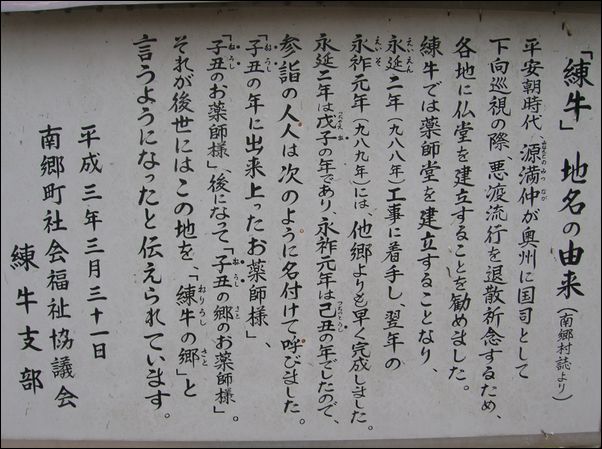 「練牛」地名の由来（南郷村誌より）
平安朝時代、源満仲が奥州に国司として
下向巡視の際、悪疫流行を退散祈念するため、
各地に仏堂を建立することを勧めました。
練牛では薬師堂を建立することなり、
永延二年（九八八年）工事に着手し、翌年の
永祚元年（九八九年）には、他郷よりも早く完成しました。
永延二年は戊子の年であり、永祚元年は己丑の年でしたので、
参詣の人人は次のように名付けて呼びました。
「子丑の年に出来上ったお薬師様」、
「子丑のお薬師様」、後になって「子丑の郷のお薬師様」。
それが後世にはこの地を、「練牛の郷」と
言うようになったと伝えられています。
平成三年三月三十一日
南郷町社会福祉協議会
練牛支部